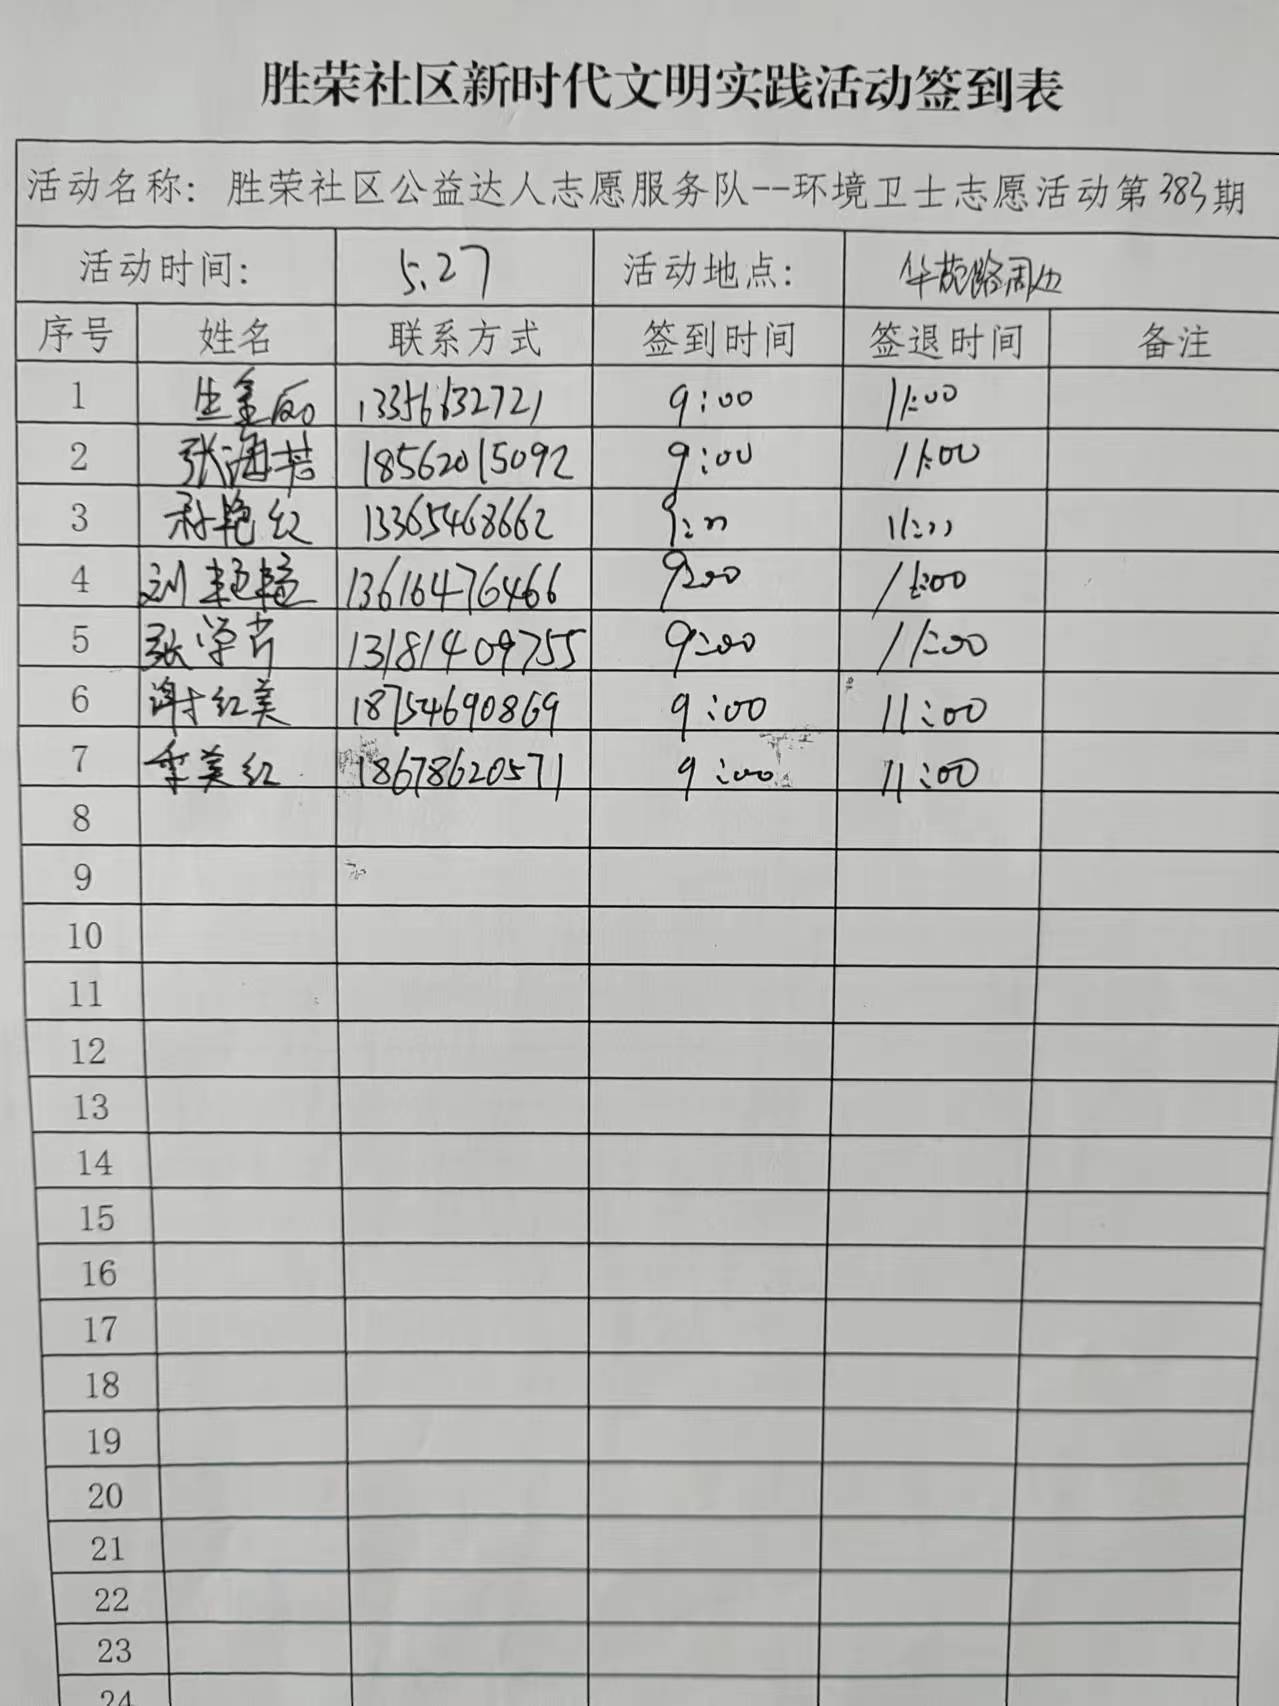 胜荣社区新时代文明实践活动签到表
活动名称：胜荣社区公益达人志愿服务队--环境卫士志愿活动第383期
活动时间： 5.27 活动地点： 华苑路周边
序号 姓名 联系方式 签到时间 签退时间 备注
1 13356632721 9:00 11:00
2 张海芳 18562015092 9:00 11:00
3 孙艳红 13365468662 9:00 11:00
4 刘艳 13616476466 9:00 11:00
5 张学芹 13181409755 9:00 11:00
6 谢红美 18754690869 9:00 11:00
7 李美红 18678620571 9:00 11:00
8
9
10
11
12
13
14
15
16
17
18
19
20
21
22
23
24